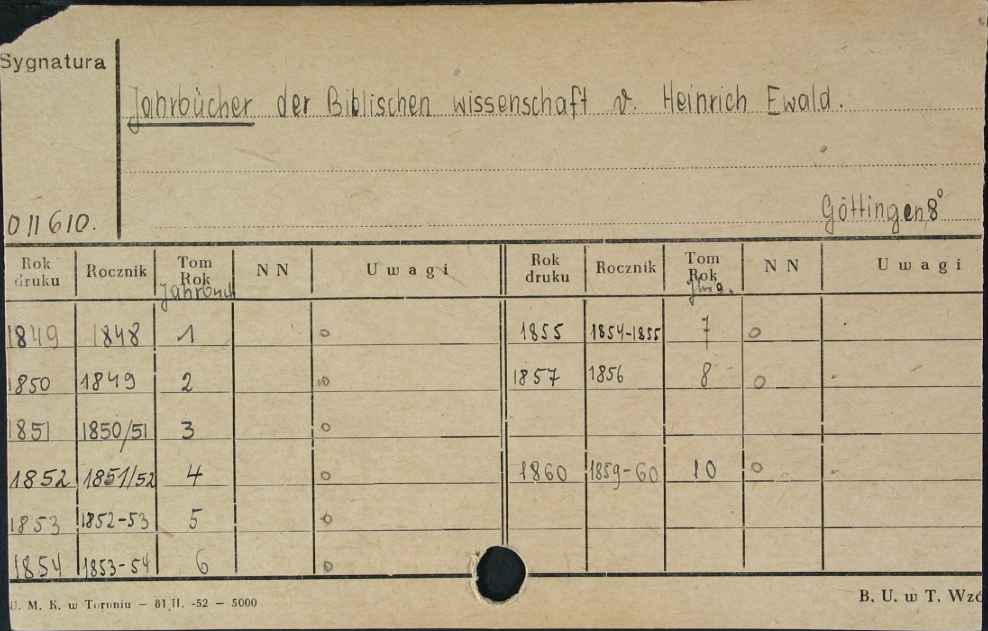 Sygnatura
Jahrbücher der Biblischen wissenschaft v. Heinrich Ewald.
Göttingen 8°
011610.
Rok druku Rocznik Tom Rok Jahrbuch NN Uwagi Rok druku Rocznik Tom Rok NN Uwagi
1849 1848 1 o 1855 1854-1855 7 o
1850 1849 2 o 1857 1856 8 o
1851 1850/51 3 o
1852 1851/52 4 o 1860 1859-60 10 o
1853 1852-53 5 o
1854 1853-54 6 o
U. M. K. w Toruniu — 81 II. -52 — 5000 B. U. w T. Wzó